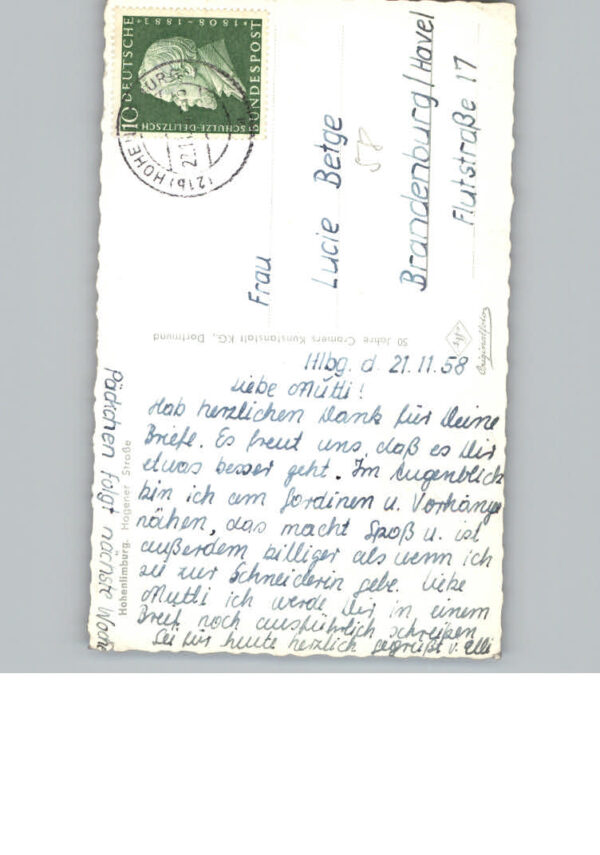 DEUTSCHE
* 1808 - 1883 +
10
BUNDESPOST
SCHULZE-DELITZSCH
(21b) HOHE
Frau
Lucie Betge
58
Brandenburg/Havel
Flutstraße 17
50 Jahre Cramers Kunstanstalt KG., Dortmund
Originalfoto
Hlbg. d. 21.11.58
Liebe Mutti!
Hab herzlichen Dank für Deine
Briefe. Es freut uns, daß es Dir
etwas besser geht. Im Augenblick
bin ich am Gardinen u. Vorhänge
nähen, das macht Spaß u. ist
außerdem billiger als wenn ich
sie zur Schneiderin gebe. Liebe
Mutti ich werde Dir in einem
Brief noch ausführlich schreiben
Sei für heute herzlich gegrüßt v. Elli
Päckchen folgt nächste Woche
Hohenlimburg. Hagener Straße